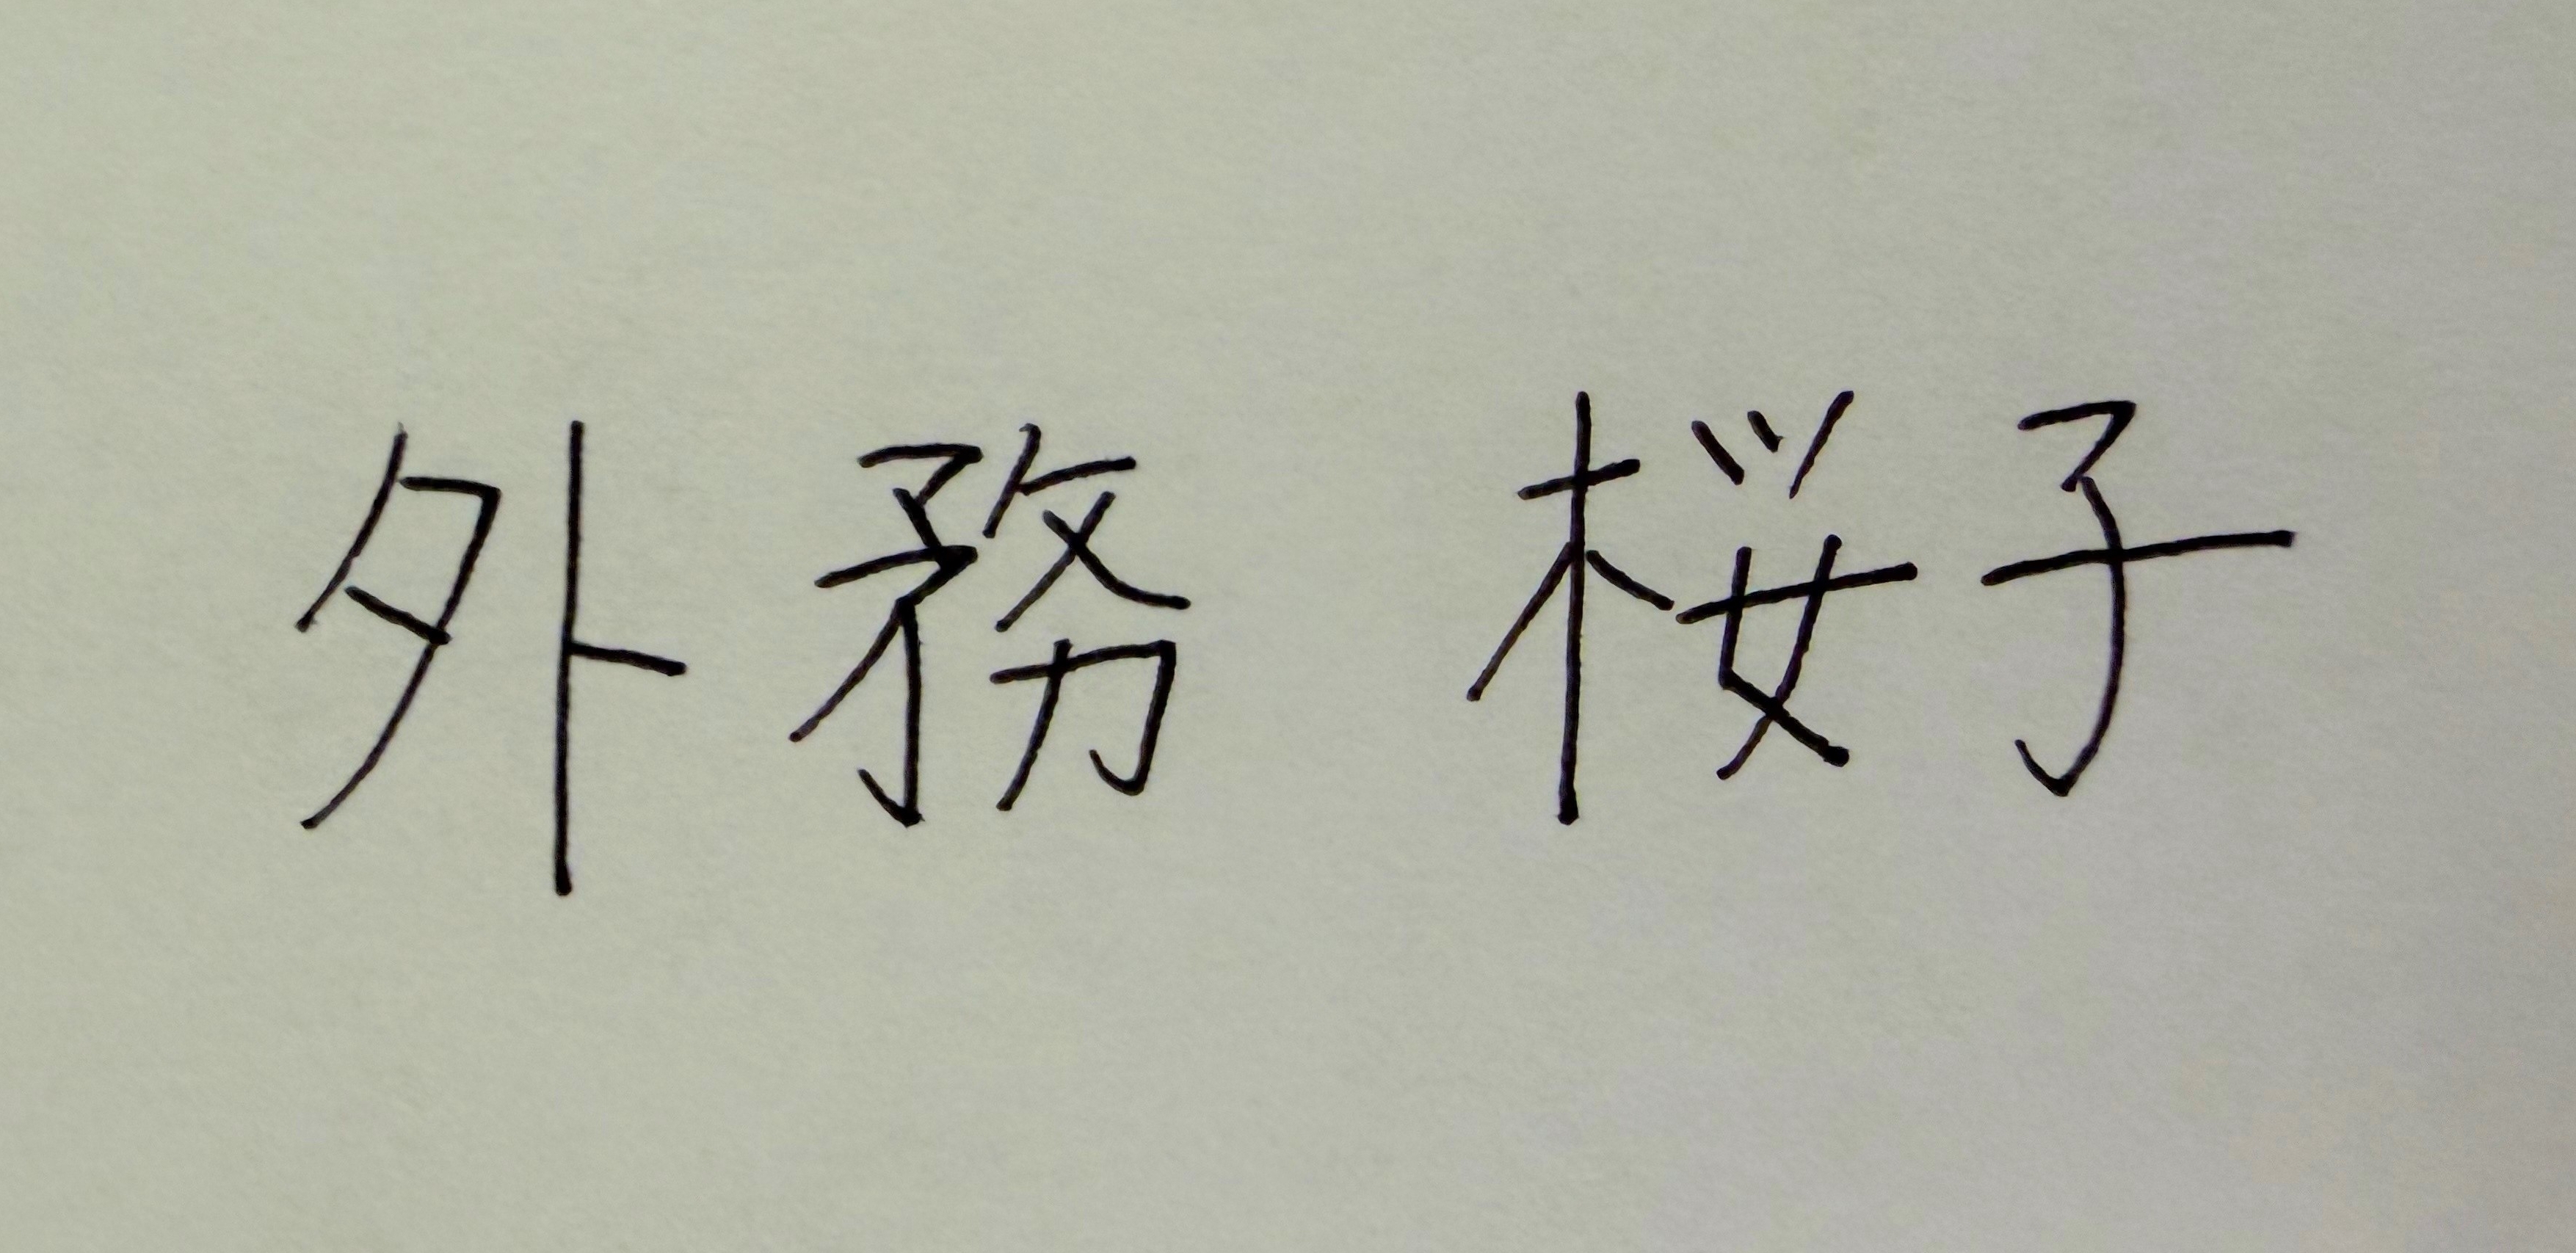 外務 桜子